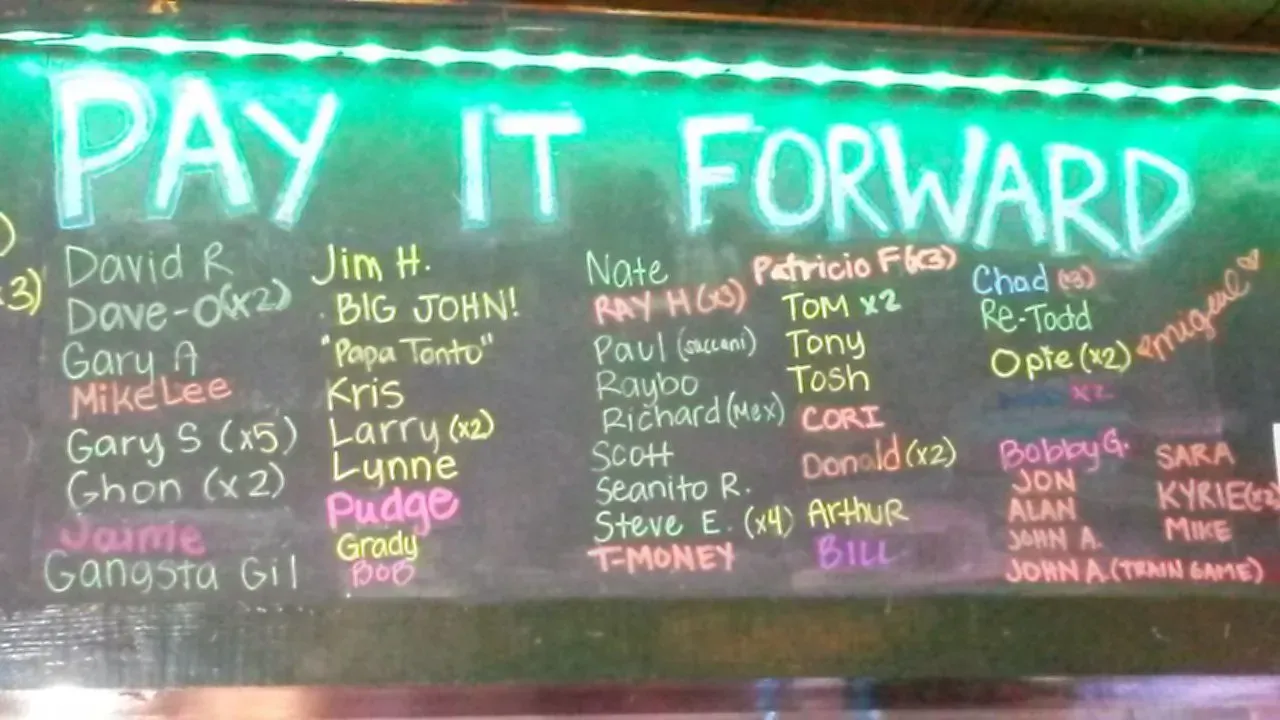 PAY IT FORWARD
3)
David R
Dave-O(x2)
Gary A
Mike Lee
Gary S (x5)
Ghon (x2)
Jaime
Gangsta Gil
Jim H.
BIG JOHN!
"Papa Tonto"
Kris
Larry (x2)
Lynne
Pudge
Grady
BOB
Nate
RAY H (x3)
Paul (saccani)
Raybo
Richard (Mex)
Scott
Seanito R.
Steve E. (x4)
T-MONEY
Patricio F (x3)
TOM x2
Tony
Tosh
CORI
Donald (x2)
ArthuR
BILL
Chad (x3)
Re-Todd
Opie (x2)
miguel
x2
Bobby G.
JON
ALAN
JOHN A.
JOHN A. (TRAIN GAME)
SARA
KYRIE(x2)
MIKE